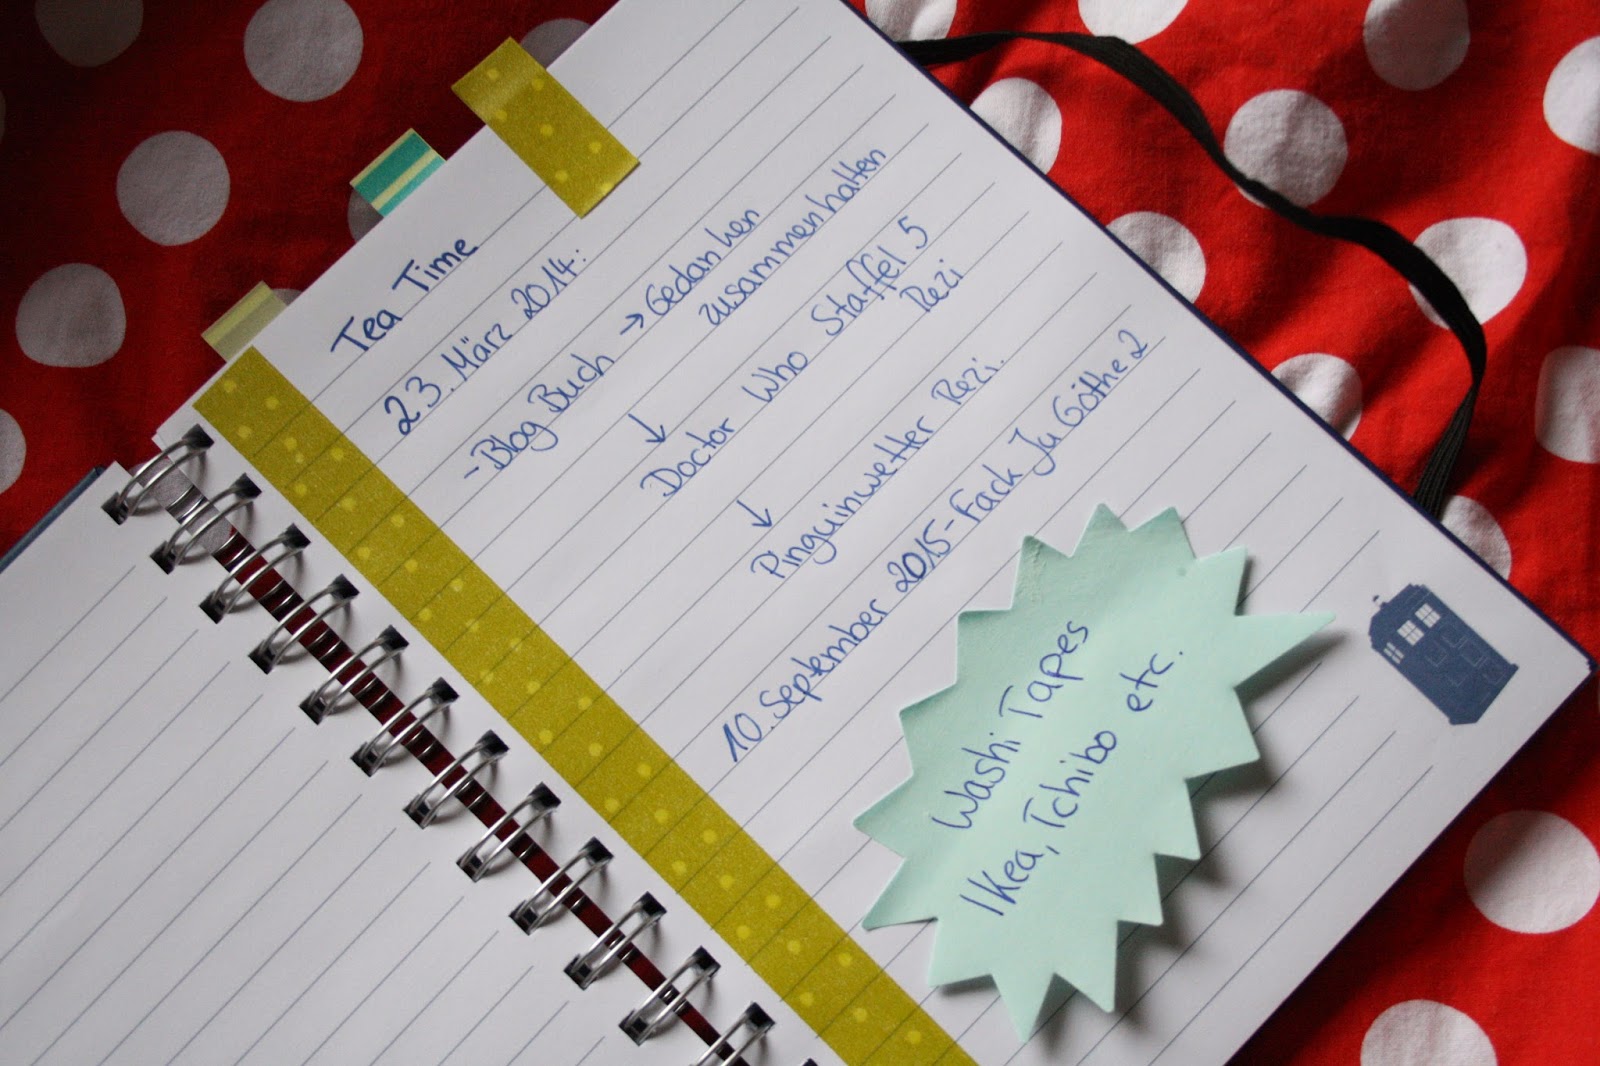 Tea Time
23. März 2014:
- Blog Buch → Gedanken
zusammenhalten
↓
Doctor Who Staffel 5
Rezi
↓
Pinguinwetter Rezi.
10. September 2015 - Fack Ju Göthe 2
Washi Tapes
Ikea, Tchibo etc.